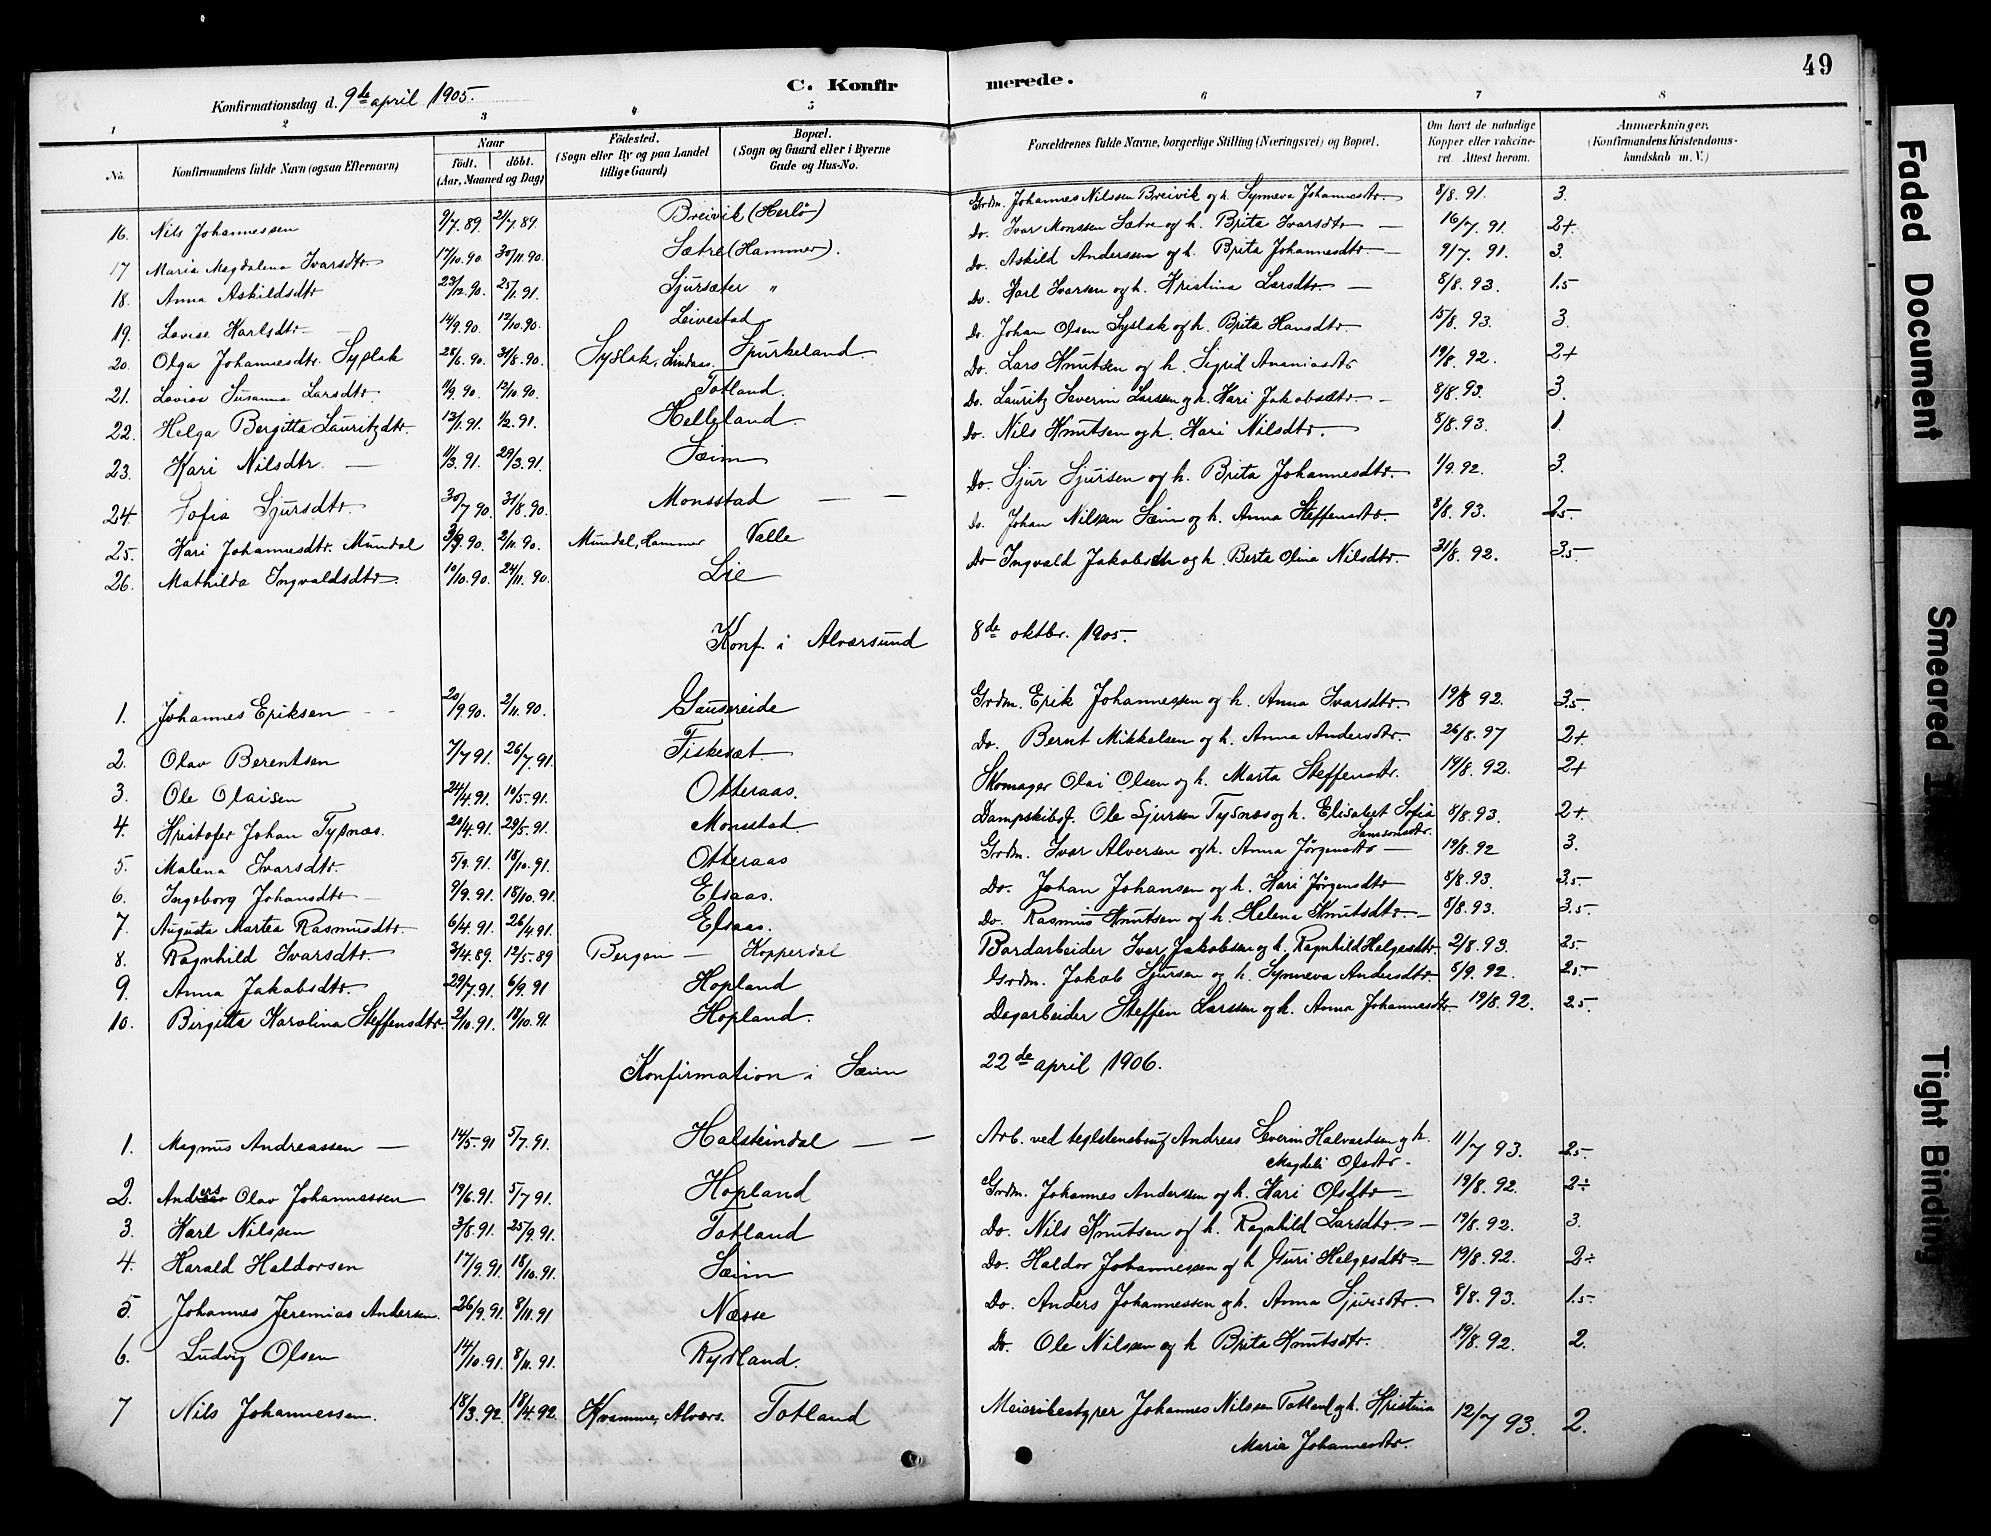 49
C. Konfirmerede.
Konfirmationsdag d. 9de april 1905.
1 2 3 4 5 6 7 8
No. Konfirmandens fulde Navn (ogsaa Efternavn) Naar födt. döbt. (Aar, Maaned og Dag) Födested. (Sogn eller By og paa Landet tillige Gaard) Bopæl. (Sogn og Gaard eller i Byerne Gade og Hus-No. Forældrenes fulde Navne, borgerlige Stilling (Næringsvei) og Bopæl. Om havt de naturlige Kopper eller vakcineret. Attest herom. Anmærkninger. (Konfirmandens Kristendomskundskab m. V.)
16. Nils Johannessen 9/7.89. 21/7.89. Breivik (Herlö) Grdm. Johannes Nilssen Breivik og h. Synneva Johannesdtr 8/8.91. 3.
17 Maria Magdalena Ivarsdtr. 17/10.90. 30/11.90. Sætre (Hammer). Do. Ivar Monssen Sætre og h. Brita Ivarsdtr — 16/7.91. 2+
18. Anna Askildsdtr 23/12.90. 25/1.91. Sjursæter " Do. Askild Anderssen og h. Brita Johannesdtr. — 9/7.91. 3.
19. Lovise Karlsdtr 14/9.90. 12/10.90. Leivestad Do. Karl Ivarsen og h. Kristina Larsdtr. — 8/8.93. 1.5
20. Olga Johannesdtr. Syslak 28/6.90. 31/8.90. Syslak, Lindaas. Spurkeland Do. Johan Olsen Syslak og h. Brita Hansdtr 15/8.93. 3
21. Lovise Susanna Larsdtr. 11/9.90. 12/10.90. Totland. Do. Lars Knutsen og h. Sigrid Ananiasdtr 19/8.92. 2+
22. Helga Bergitta Lauritzdtr. 13/1.91. 1/2.91. Helleland. Do. Lauritz Severin Larssen og h. Kari Jakobsdtr. — 8/8.93. 3.
23. Kari Nilsdtr. — 11/3.91. 29/3.91. Sæim Do. Nils Knutsen og h. Kari Nilsdtr. 8/8.93. 1.
24 Sofia Sjursdtr 30/7.90. 31/8.90. Monsstad — — Do. Sjur Sjursen og h. Brita Johannesdtr. 1/9.92. 3.
25. Kari Johannesdtr. Mundal 2/11.90. Mundal, Hammer Valle Do. Johan Nilssen Sæim og h. Anna Steffensdtr. 8/8.93. 2.5-
26. Mathilda Ingvaldsdtr. 10/10.90. 24/11.90. Lie Do Ingvald Jakobsen og h. Berta Olina Nilsdtr. 31/8.92. 3.5-
Konf. i Alversund 8de oktbr. 1905.
1. Johannes Eriksen 20/9.90. 2/11.90. Gausereide Grdm. Erik Johannessen og h. Anna Ivarsdtr. 19/8 92. 3.5-
2. Olav Berentsen 7/7 91. 26/7.91. Fiskesæt. Do. Bernt Mikkelsen og h. Anna Andersdtr. 26/8.97 2+
3. Ole Olaisen 24/4.91. 10/5.91. Otteraas. Skomager Olai Olsen og h. Marta Steffensdtr. 19/8.92. 2+
4. Kristofer Johan Tysnæs. 20/4.91. 29/5.91. Monsstad. Dampskibsf. Ole Sjursen Tysnæs og h. Elisabet Sofia Samsonsdtr. 8/8.93. 2+
5. Malena Ivarsdtr. 5/9.91. 18/10.91. Otteraas Grdm. Ivar Alversen og h. Anna Jørgensdtr — 19/8.92 3.
6. Ingeborg Johansdtr 9/9.91. 18/10.91. Elsaas. Do. Johan Johansen og h. Kari Jørgensdtr 8/8.93. 3.5-
7. Augusta Martea Rasmusdtr. 6/4.91. 26/4.91. Elsaas. Do. Rasmus Knutsen og h. Helena Knutsdtr. — 8/8.93. 3.5-
8. Ragnhild Ivarsdtr. 3/4.89. 12/5.89 Bergen — Kopperdal Bordarbeider Ivar Jakobsen og h. Ragnhild Helgesdtr. 2/8.93. 2.5-
9. Anna Jakobsdtr. 29/7.91. 6/9.91 Hopland Grdm. Jakob Sjursen og h. Synneva Andersdtr. 8/9.92. 2.5-
10. Birgitta Karolina Steffensdtr. 2/10.91. 18/10.91. Hopland. Dagarbeider Steffen Larssen og h. Anna Johannesdtr. 19/8.92. 2.5-
Konfirmation i Sæim 22de april 1906.
1. Magnus Andreassen — 14/5.91 5/7.91. Halsteindal — — Arb. ved Andreas Severin Halvardsen og h. Magdeli Olsdtr. 11/7 93. 2.5-
2. Anders Olav Johannessen 19/6.91. 5/7 91. Hopland Grdm. Johannes Anderssen og h. Kari Olsdtr 19/8.92. 2÷
3. Karl Nilssen 3/8.91. 25/9.91. Totland Do. Nils Knutsen og h. Ragnhild Larsdtr. — 19/8.92. 3.
4. Harald Haldorsen 17/9.91. 18/10.91. Sæim Do. Haldor Johannessen og h Guri Helgesdtr. 19/8.92. 2÷
5. Johannes Jeremias Andersen. 26/9.91. 8/11.91 Næsse Do. Anders Johannessen og h. Anna Sjursdtr. 8/8.93. 1.5-
6. Ludvig Olsen 14/10.91. 8/11.91. Rydland. Do. Ole Nilssen og h Brita Knutsdtr. 19/8.92. 2.
7 Nils Johannessen. 18/3.92. 18/4.92. Kvamme, Alvers. Totland Meieribestyrer Johannes Nilssen Totland og h. Kristina Maria Johannesdtr. 12/7 93. 2.
Faded Document
Smeared
Tight Binding